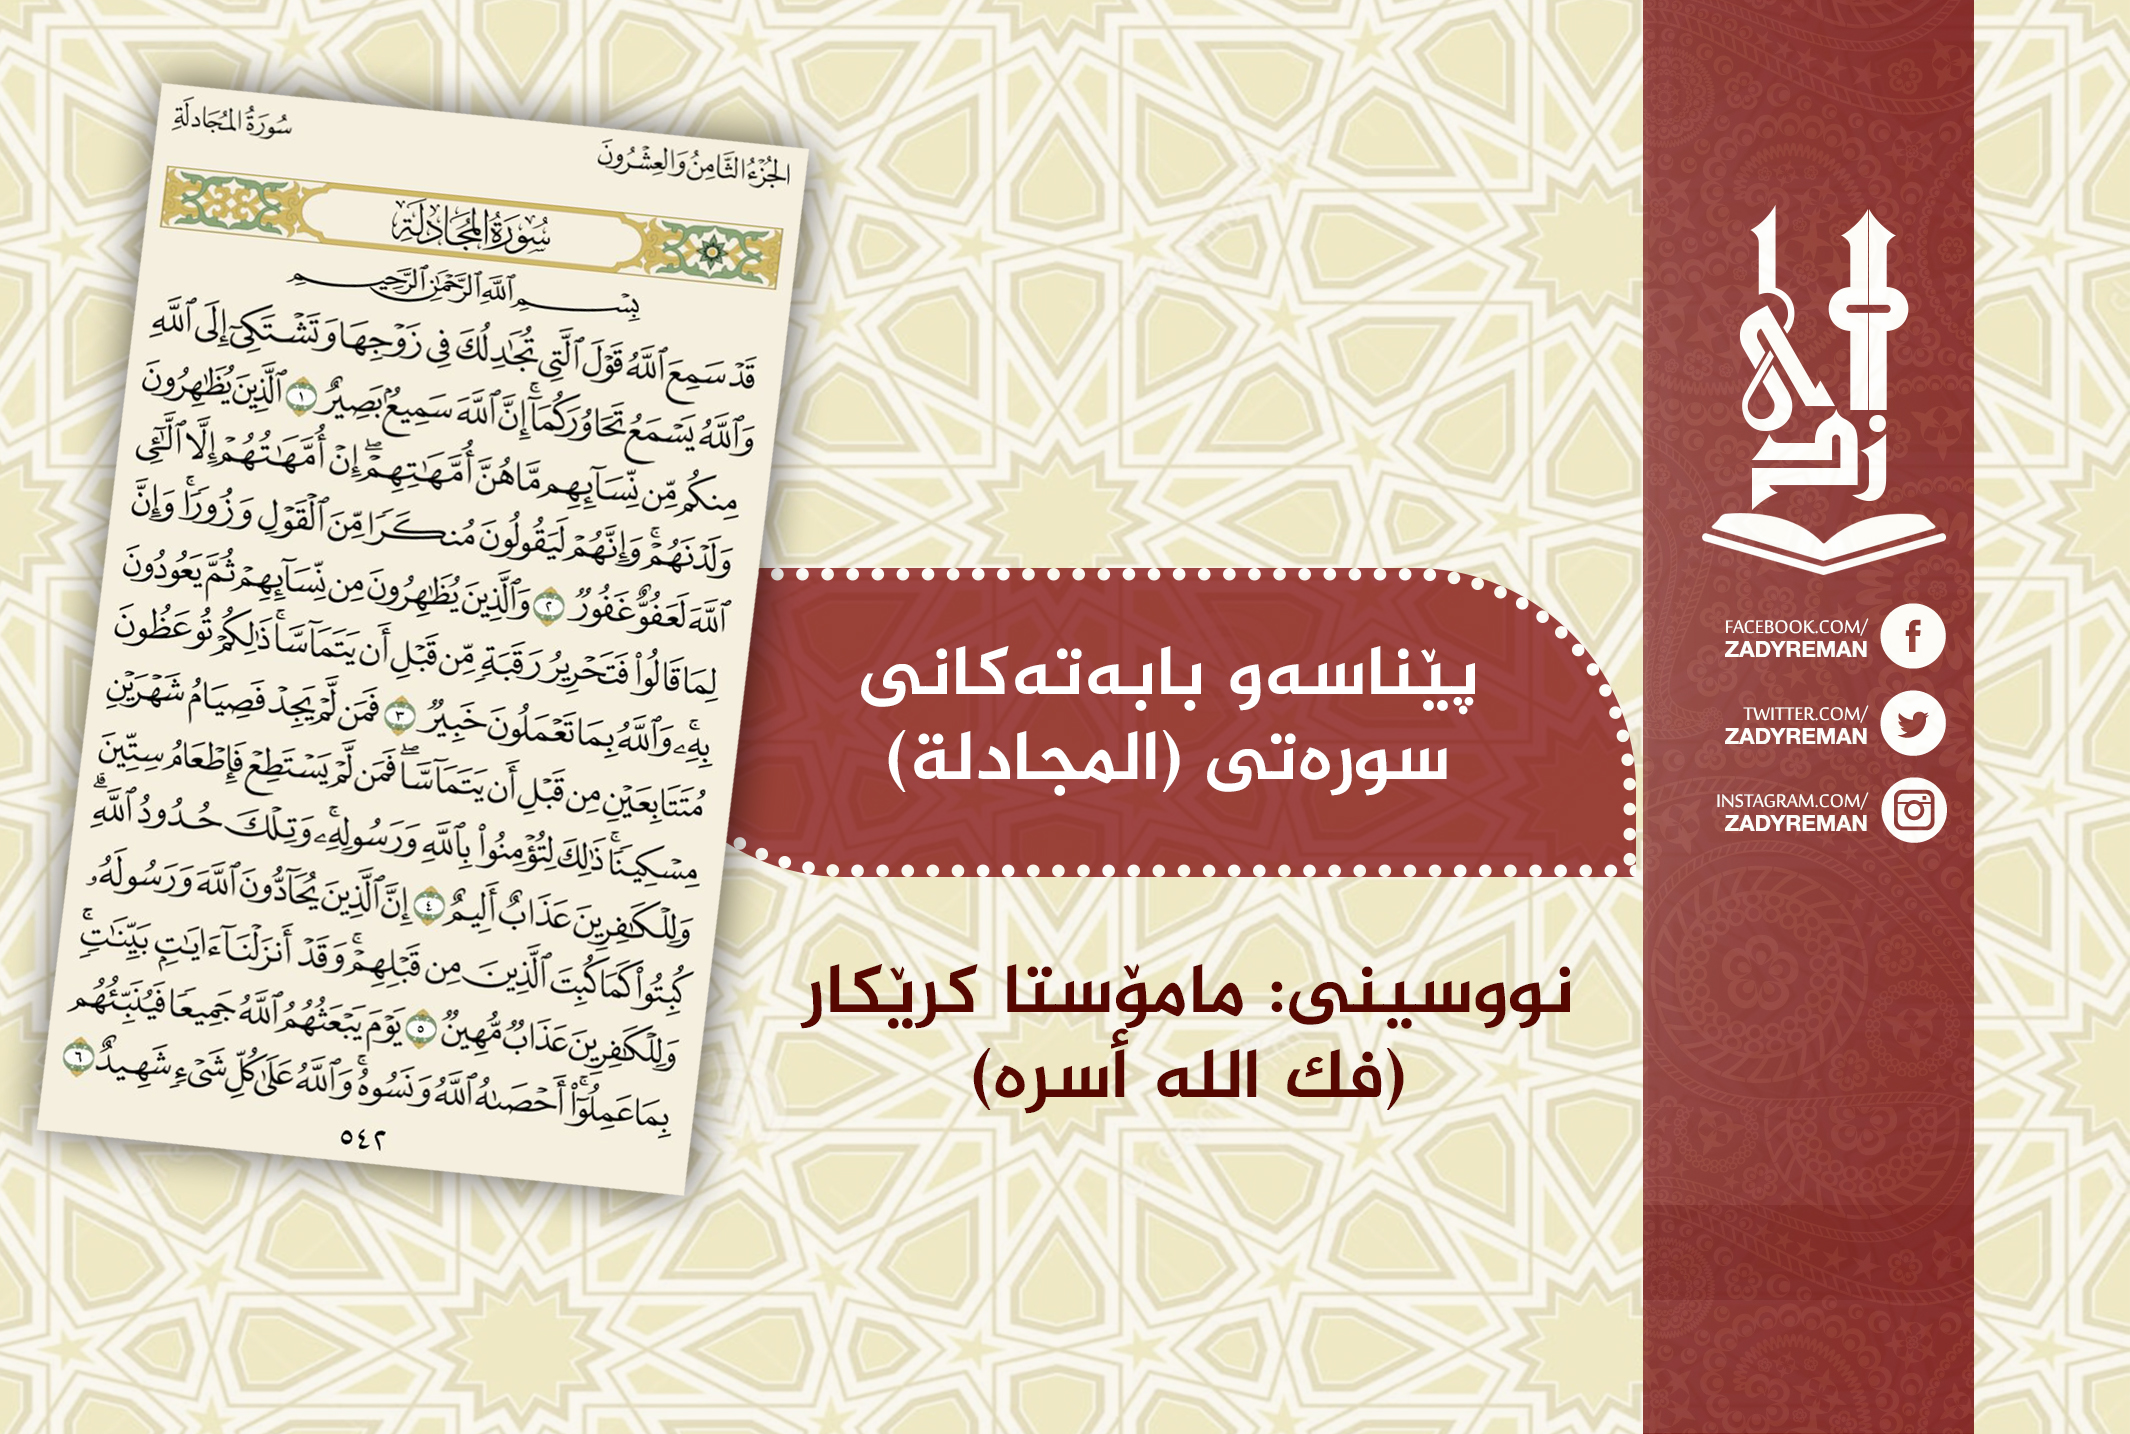 الجُزْءُ الثَّامِنُ وَالعِشْرُونَ
سُورَةُ المُجَادلَةِ
سُورَةُ المُجَادلَةِ
بِسْمِ ٱللَّهِ ٱلرَّحْمَٰنِ ٱلرَّحِيمِ
قَدْ سَمِعَ ٱللَّهُ قَوْلَ ٱلَّتِي تُجَٰدِلُكَ فِي زَوْجِهَا وَتَشْتَكِيٓ إِلَى ٱللَّهِ
وَٱللَّهُ يَسْمَعُ تَحَاوُرَكُمَآۚ إِنَّ ٱللَّهَ سَمِيعُۢ بَصِيرٌ ١ ٱلَّذِينَ يُظَٰهِرُونَ
مِنكُم مِّن نِّسَآئِهِم مَّا هُنَّ أُمَّهَٰتِهِمْۖ إِنْ أُمَّهَٰتُهُمْ إِلَّا ٱلَّٰٓـِٔي
وَلَدْنَهُمْۚ وَإِنَّهُمْ لَيَقُولُونَ مُنكَرًا مِّنَ ٱلْقَوْلِ وَزُورًاۚ وَإِنَّ
ٱللَّهَ لَعَفُوٌّ غَفُورٌ ٢ وَٱلَّذِينَ يُظَٰهِرُونَ مِن نِّسَآئِهِمْ ثُمَّ يَعُودُونَ
لِمَا قَالُوا۟ فَتَحْرِيرُ رَقَبَةٍ مِّن قَبْلِ أَن يَتَمَآسَّاۚ ذَٰلِكُمْ تُوعَظُونَ
بِهِۦۚ وَٱللَّهُ بِمَا تَعْمَلُونَ خَبِيرٌ ٣ فَمَن لَّمْ يَجِدْ فَصِيَامُ شَهْرَيْنِ
مُتَتَابِعَيْنِ مِن قَبْلِ أَن يَتَمَآسَّاۖ فَمَن لَّمْ يَسْتَطِعْ فَإِطْعَامُ سِتِّينَ
مِسْكِينًاۚ ذَٰلِكَ لِتُؤْمِنُوا۟ بِٱللَّهِ وَرَسُولِهِۦۚ وَتِلْكَ حُدُودُ ٱللَّهِۗ
وَلِلْكَٰفِرِينَ عَذَابٌ أَلِيمٌ ٤ إِنَّ ٱلَّذِينَ يُحَآدُّونَ ٱللَّهَ وَرَسُولَهُۥ
كُبِتُوا۟ كَمَا كُبِتَ ٱلَّذِينَ مِن قَبْلِهِمْۚ وَقَدْ أَنزَلْنَآ ءَايَٰتٍۭ بَيِّنَٰتٍۚ
وَلِلْكَٰفِرِينَ عَذَابٌ مُّهِينٌ ٥ يَوْمَ يَبْعَثُهُمُ ٱللَّهُ جَمِيعًا فَيُنَبِّئُهُم
بِمَا عَمِلُوٓا۟ۚ أَحْصَىٰهُ ٱللَّهُ وَنَسُوهُۚ وَٱللَّهُ عَلَىٰ كُلِّ شَىْءٍ شَهِيدٌ ٦
٥٤٢
پێناسەو بابەتەکانی
سورەتی (المجادلة)
نووسینی: مامۆستا کرێکار
(فك الله أسره)
زادی
FACEBOOK.COM/
ZADYREMAN
TWITTER.COM/
ZADYREMAN
INSTAGRAM.COM/
ZADYREMAN